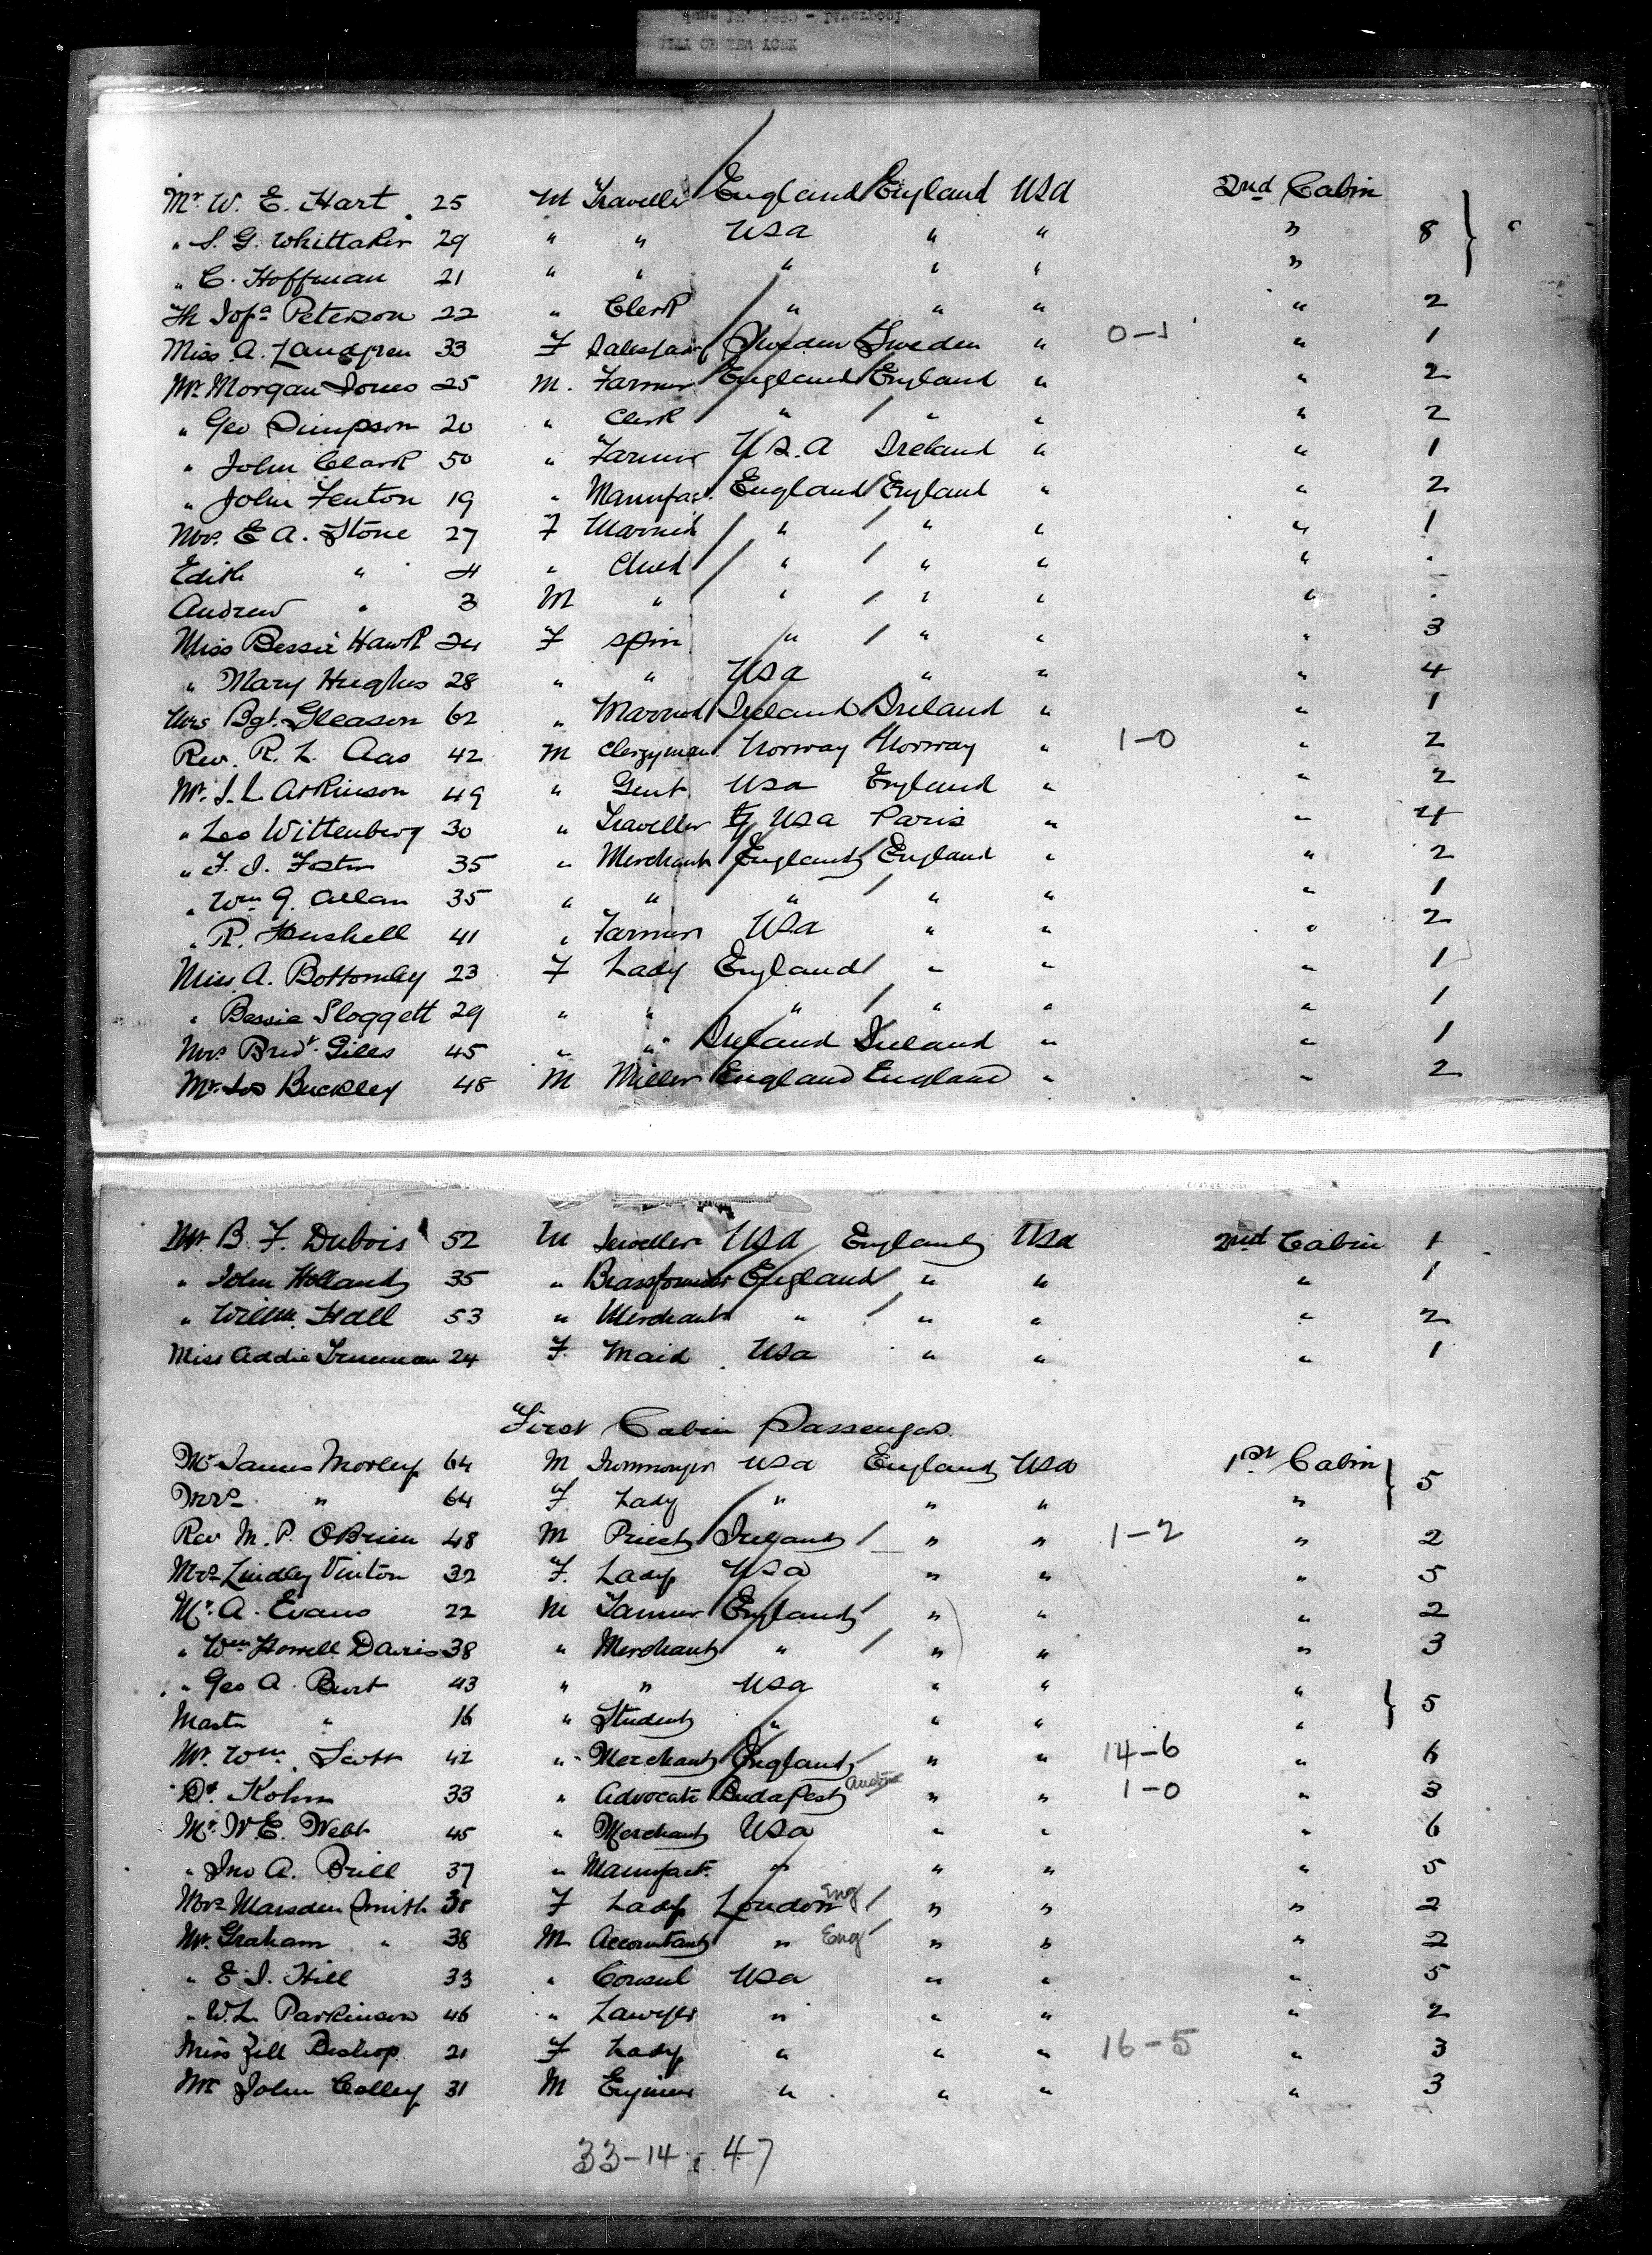 CITY OF NEW YORK
Mr. W. E. Hart 25 M Traveller England England USA 2nd Cabin
" S. G. Whittaker 29 " " USA " " " 8
" C. Hoffman 21 " " " " " "
Peterson 22 " Clerk " " " " 2
Miss A. 33 F Sweden Sweden " 0-1 " 1
Mr. Morgan Jones 25 M. Farmer England England " " 2
" Geo Simpson 20 " Clerk " " " " 2
" John Clark 50 " Farmer U.S.A Ireland " " 1
" John Fenton 19 " Manufac. England England " " 2
Mrs. E A. Stone 27 F Married " " " " 1
Edith " 4 " Child " " " "
Andrew " 3 M " " " " "
Miss Bessie Hawk 24 F spin " " " " 3
" Mary Hughes 28 " " USA " " " 4
Mrs Bgt. Gleason 62 " Married Ireland Ireland " " 1
Rev. R. L. Aas 42 M Clergyman Norway Norway " 1-0 " 2
Mr. J. L. Atkinson 49 " Gent USA England " " 2
" Leo Wittenberg 30 " Traveller USA Paris " " 4
" F. J. Foster 35 " Merchant England England " " 2
" Wm G. Allan 35 " " " " " " 1
" R. 41 " Farmer USA " " " 2
Miss A. Bottomley 23 F Lady England " " " 1
" Bessie Sloggett 29 " " " " " " 1
Mrs Bridt. Giles 45 " " Ireland Ireland " " 1
Mr. Jos Buckley 48 M Miller England England " " 2
Mr. B. F. Dubois 52 M Jeweller USA England USA 2nd Cabin 1
" John Holland 35 " Brassfounder England " " " 1
" Willm. Hall 53 " Merchant " " " " 2
Miss Addie Trueman 24 F. Maid USA " " " 1
First Cabin Passengers.
Mr James Morley 64 M Ironmonger USA England USA 1st Cabin 5
Mrs " 64 F. Lady " " " "
Rev M. P. OBrien 48 M Priest Ireland " " 1-2 " 2
Mrs Lindley Vinton 32 F. Lady USA " " " 5
Mr. A. Evans 22 M Tanner England " " " 2
" Wm Howell Davies 38 " Merchant " " " " 3
" Geo A. Burt 43 " " USA " " " 5
Mastr " 16 " Student " " " "
Mr. Wm. Scott 42 " Merchant England " " 14-6 " 6
Dr. Kohn 33 " Advocate Budapest Austria " " 1-0 " 3
Mr. W. E. Webb 45 " Merchant USA " " " 6
" Jno A. Brill 37 " Manufact. " " " " 5
Mrs Marsden Smith 38 F Lady London Eng " " " 2
Mr. Graham " 38 M Accountant " Eng " " " 2
" E. J. Hill 33 " Consul USA " " " 5
" W. L. Parkinson 46 " Lawyer " " " " 2
Miss Zell Bishop 21 F Lady " " " 16-5 " 3
Mr John Colley 31 M Engineer " " " " 3
33-14 47